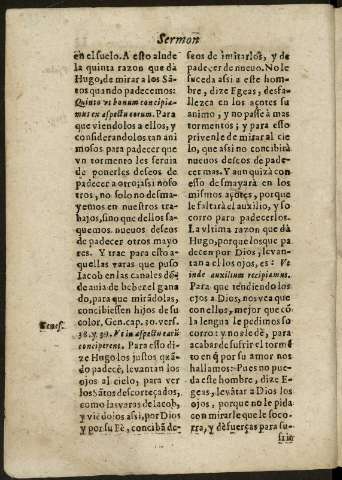 Sermon
en el suelo. A esto alude
la quinta razon que dà
Hugo, de mirar a los Sã-
tos quando padecemos:
Quinto vt bonum concipia-
mus ex aspectu eorum. Para
que viendolos a ellos, y
considerandolos tan ani
mosos para padecer que
vn tormento les seruia
de ponerles deseos de
padecer a otro; assi noso
tros, no solo no desma-
yemos en nuestros tra-
bajos, sino que dellos sa-
quemos nueuos deseos
de padecer otros mayo
res. Y trae para esto a-
quellas varas que puso
Iacob en las canales dõ-
de auia de beber el gana
do, para que mirãdolas,
concibiessen hijos de su
color, Gen. cap. 30. vers.
Genes.
38. y 39. Vt in aspectu earũ
conciperent. Para esto di-
ze Hugo los justos quã-
do padecẽ, leuantan los
ojos al cielo, para ver
los Sãtos descorteçados,
como las varas de Iacob,
y viẽdolos assi, por Dios
y por su Fè, concibã de-
seos de imitarlos, y de
padecer de nueuo. No le
suceda assi a este hom-
bre, dize Egeas, desfa-
llezca en los açotes su
animo, y no passe à mas
tormentos; y para esto
priuenle de mirar al cie
lo, que assi no concibirà
nueuos deseos de pade-
cer mas. Y aun quizà con
esso desmayarà en los
mismos açotes, porque
le faltarà el auxilio, y so
corro para padecerlos.
La vltima razon que dà
Hugo, porque los que pa
decen por Dios, leuan-
tan a el los ojos, es: Vt
inde auxilium recipiamus.
Para que tendiendo los
ojos a Dios, nos vea que
con ellos, mejor que cõ
la lengua le pedimos so
corro: y nos le dè, para a-
cabar de sufrir el tormẽ
to en q̃ por su amor nos
hallamos: Pues no pue-
da este hombre, dize E-
geas, leuãtar a Dios los
ojos, porque no le pida
con mirarle que le soco-
rra, y dè fuerças para su-